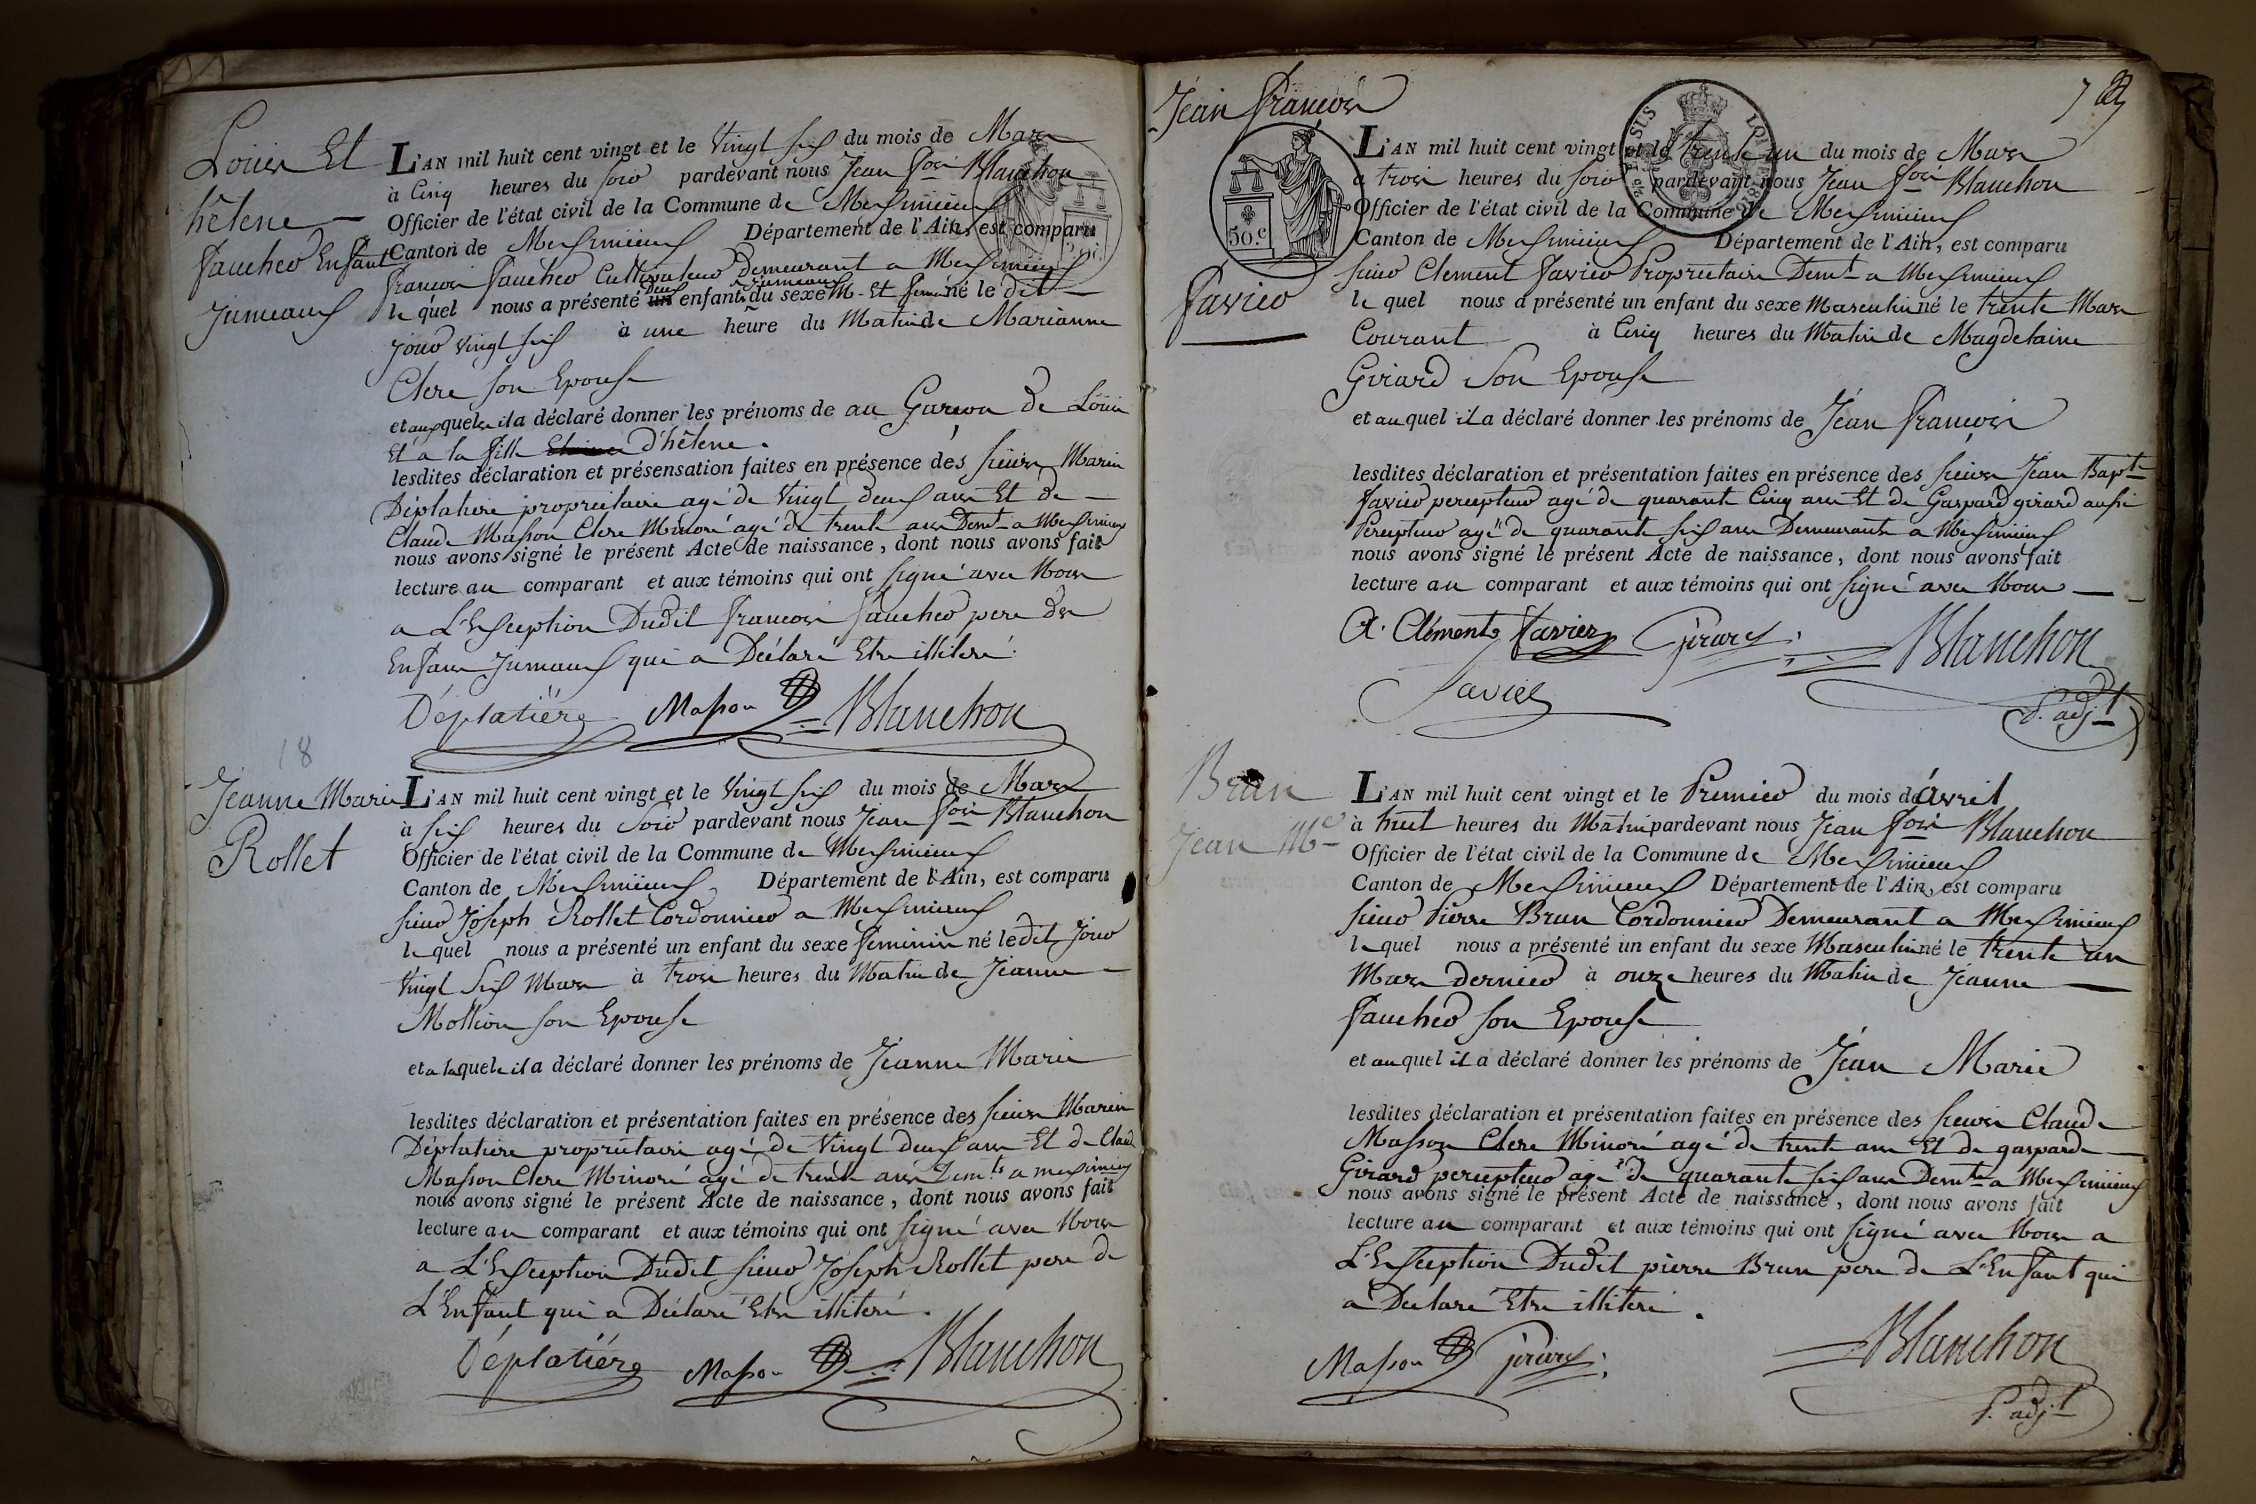 Louis Et
hélene
faucheo Enfant
Jumeaux
L'AN mil huit cent vingt et le Vingt six du mois de Mars
à Cinq heures du soir pardevant nous Jean fois Blanchon
Officier de l'état civil de la Commune de Meximieux
Canton de Meximieux Département de l'Ain, est comparu
francois faucheo Cultivateur demeurant a Meximieux
le quel nous a présenté un Deux enfants Jumeaux du sexe M. Et feminé né le dit
jour vingt six à une heure du Matin de Marianne
Clerc son Epouse
et auxquels il a déclaré donner les prénoms de au Garcon de Loüis
Et a la fille d'hélene.
lesdites déclaration et présensation faites en présence des sieurs Marin
Déplatiere propriétaire agé de Vingt deux ans Et de
Claude Masson Clerc Minoré agé de trente ans Demt a Meximieux
nous avons signé le présent Acte de naissance, dont nous avons fait
lecture au comparant et aux témoins qui ont signé avec Nous
a L'Exception Dudit francois faucheo pere des
Enfans Jumeaux qui a Déclaré Etre illiteré.
Déplatière Masson Blanchon
18
Jeanne Marie
Rollet
L'AN mil huit cent vingt et le Vingt six du mois de Mars
à six heures du Soir pardevant nous Jean fois Blanchon
Officier de l'état civil de la Commune de Meximieux
Canton de Meximieux Département de l'Ain, est comparu
sieur Joseph Rollet Cordonnier a Meximieux
le quel nous a présenté un enfant du sexe feminin né le dit Jour
Vingt Six Mars à trois heures du Matin de Jeanne
Mollion son Epouse
et a laquele il a déclaré donner les prénoms de Jeanne Marie
lesdites déclaration et présentation faites en présence des sieurs Marin
Déplatiere propriétaire agé de Vingt deux ans Et de Claude
Masson Clerc Minoré agé de trente ans Demts a meximieux
nous avons signé le présent Acte de naissance, dont nous avons fait
lecture au comparant et aux témoins qui ont signé avec Nous
a L'Exception Dudit sieur Joseph Rollet pere de
L'Enfant qui a Déclaré Etre illiteré.
Déplatière Masson Blanchon
Jean francois
favier
50.c
L'AN mil huit cent vingt et le trente un du mois de Mars
à trois heures du soir pardevant nous Jean fois Blanchon
Officier de l'état civil de la Commune de Meximieux
Canton de Meximieux Département de l'Ain, est comparu
sieur Clement favier Propriétaire Demt a Meximieux
le quel nous a présenté un enfant du sexe Masculin né le trente Mars
Courant à Cinq heures du Matin de Magdelaine
Girard Son Epouse
et au quel il a déclaré donner les prénoms de Jean francois
lesdites déclaration et présentation faites en présence des sieurs Jean Bapte
favier percepteur agé de quarante Cinq ans Et de Gaspard girard aussi
Percepteur agé de quarante six ans Demeurants a Meximieux
nous avons signé le présent Acte de naissance, dont nous avons fait
lecture au comparant et aux témoins qui ont signé avec Nous
Clément favier Girard Blanchon
favier adjt
Brun
Jean Me
L'AN mil huit cent vingt et le Premier du mois de avril
à huit heures du Matin pardevant nous Jean fois Blanchon
Officier de l'état civil de la Commune de Meximieux
Canton de Meximieux Département de l'Ain, est comparu
sieur Pierre Brun Cordonnier Demeurant a Meximieux
le quel nous a présenté un enfant du sexe Masculin né le trente un
Mars dernier à onze heures du Matin de Jeanne
faucheo son Epouse
et au quel il a déclaré donner les prénoms de Jean Marie
lesdites déclaration et présentation faites en présence des sieurs Claude
Masson Clerc Minoré agé de trente ans Et de gaspard
Girard percepteur agé de quarante six ans Demts a Meximieux
nous avons signé le présent Acte de naissance, dont nous avons fait
lecture au comparant et aux témoins qui ont signé avec Nous a
L'Exception Dudit pierre Brun pere de L'Enfant qui
a Declaré Etre illiteré.
Masson Girard Blanchon
adjt